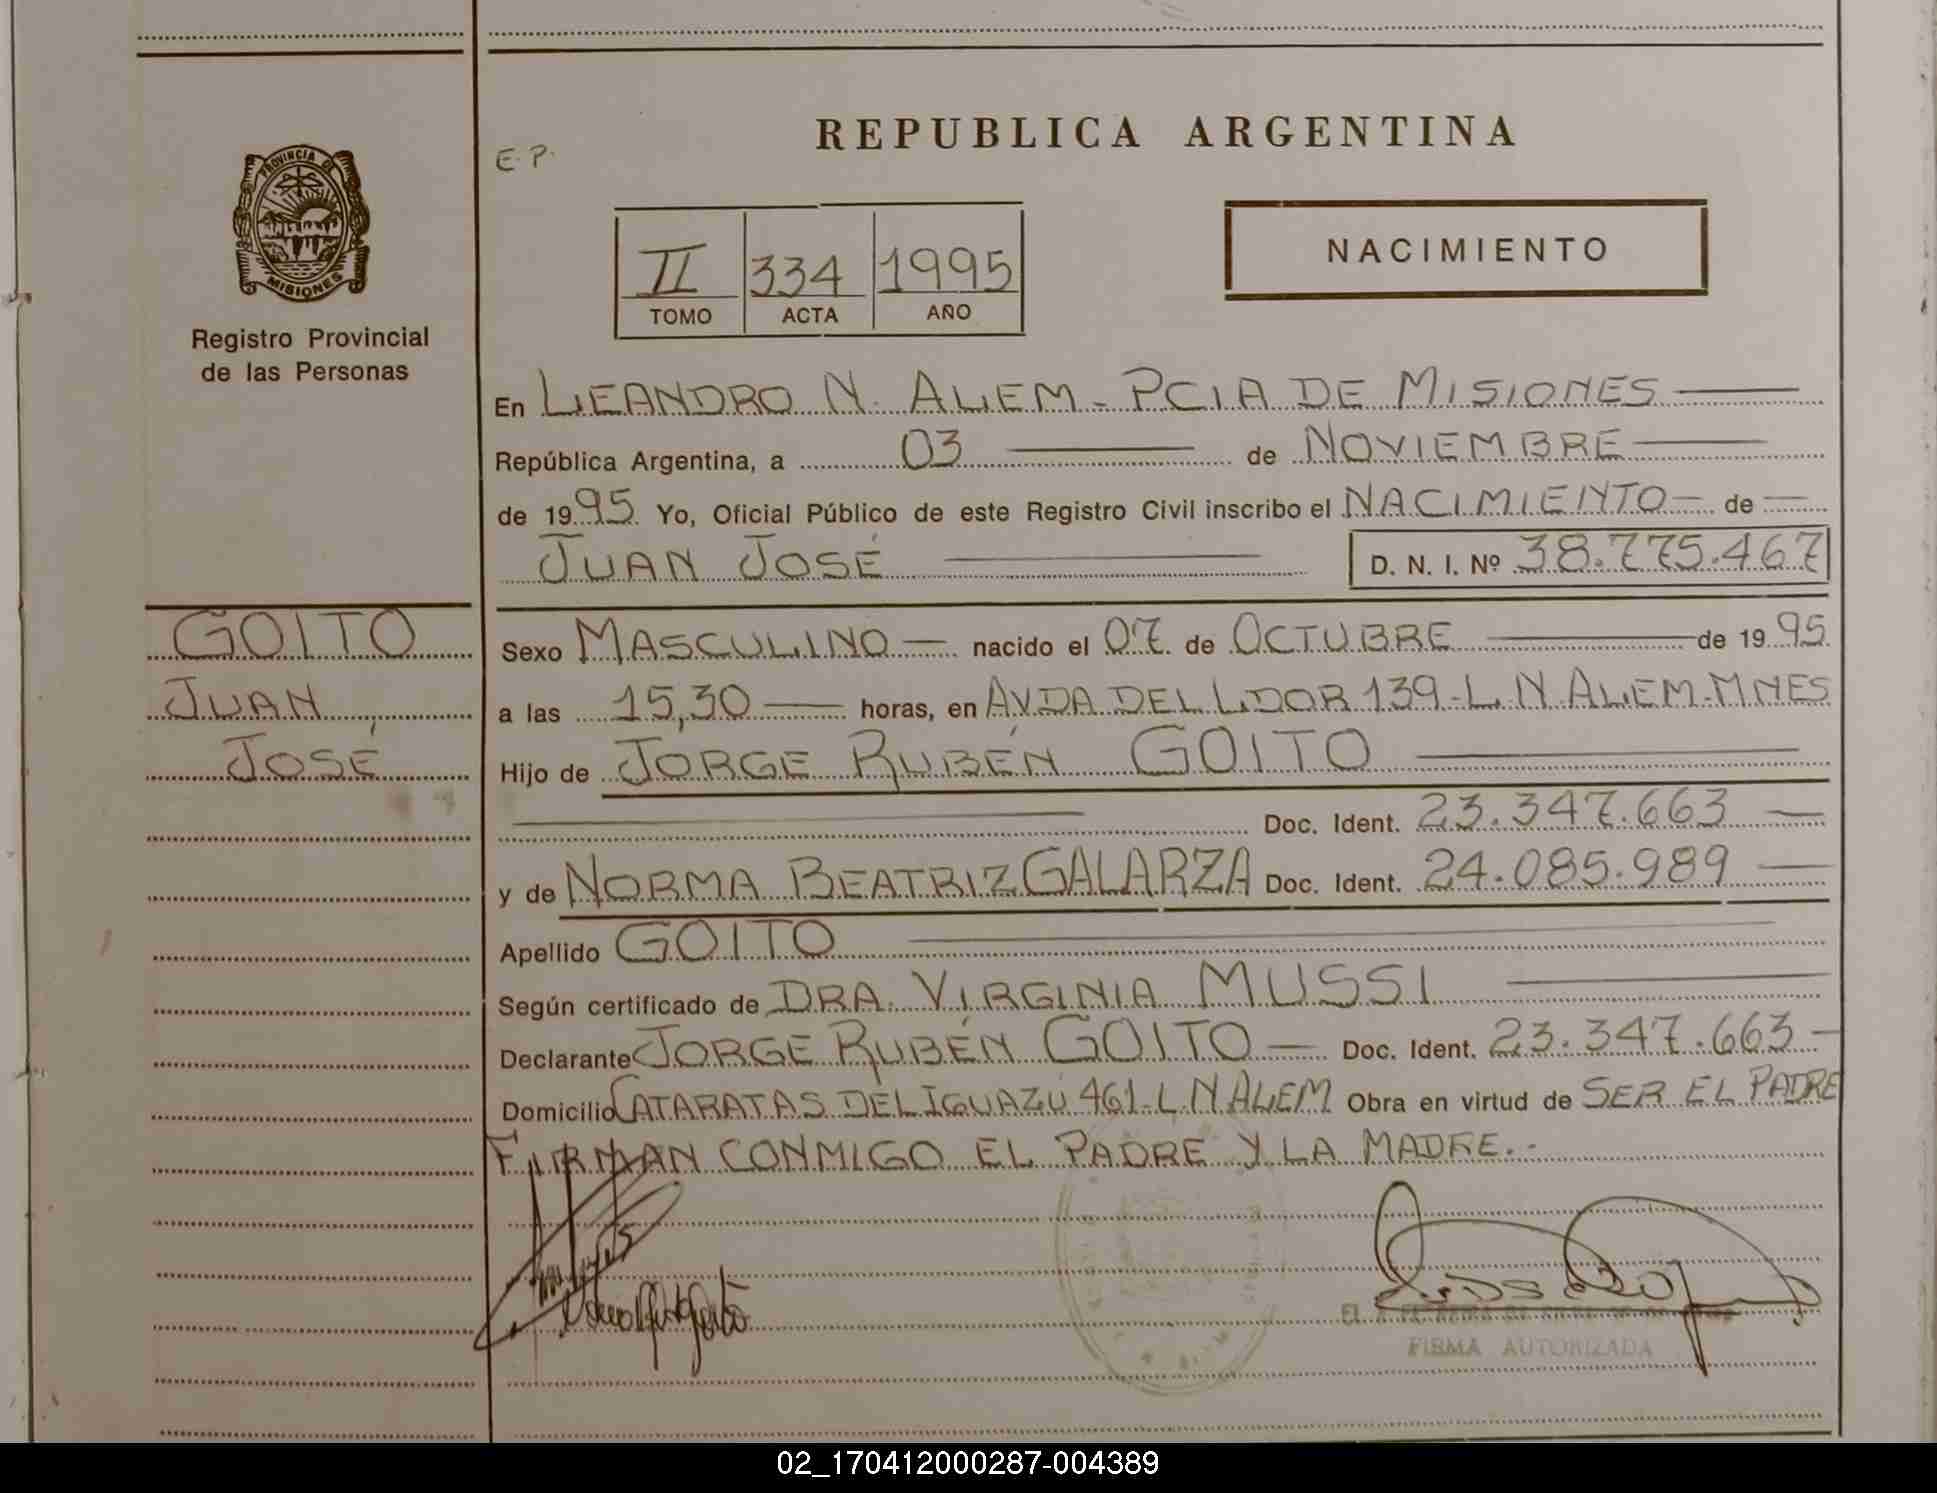 PROVINCIA DE
MISIONES
Registro Provincial
de las Personas
GOITO
JUAN
JOSÉ
E.P.
REPUBLICA ARGENTINA
II 334 1995
TOMO ACTA AÑO
NACIMIENTO
En LEANDRO N. ALEM - PCIA DE MISIONES
República Argentina, a 03 de NOVIEMBRE
de 1995 Yo, Oficial Público de este Registro Civil inscribo el NACIMIENTO de
JUAN JOSÉ D. N. I. Nº 38.775.467
Sexo MASCULINO nacido el 07 de OCTUBRE de 1995
a las 15,30 horas, en AVDA DEL LDOR 139-L.N.ALEM-MNES
Hijo de JORGE RUBÉN GOITO
Doc. Ident. 23.347.663
y de NORMA BEATRIZ GALARZA Doc. Ident. 24.085.989
Apellido GOITO
Según certificado de DRA. VIRGINIA MUSSI
Declarante JORGE RUBÉN GOITO Doc. Ident. 23.347.663
Domicilio CATARATAS DEL IGUAZÚ 461-L.N.ALEM Obra en virtud de SER EL PADRE
FIRMAN CONMIGO EL PADRE Y LA MADRE.-
FIRMA AUTORIZADA
02_170412000287-004389